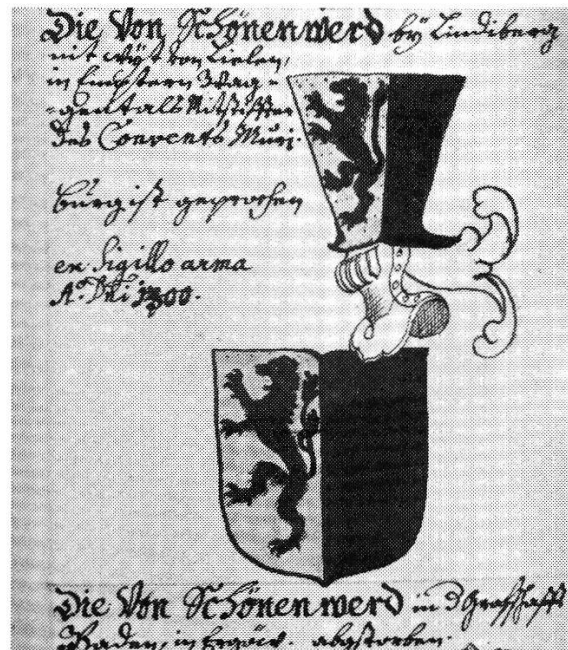 Die Von Schönenwerd by Lindiberg
nit wyt von Lielen,
in
des Convents Muri.
burg ist gebrochen
ex Sigillo arma
Aº. Dni 1300.
Die Von Schönenwerd in d Grafschafft
Baden, in Ergöw. abgstorben.